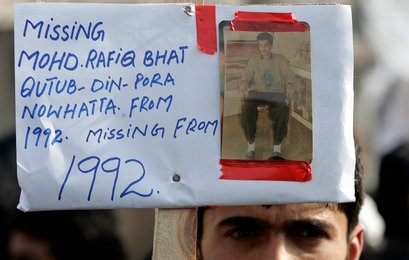 MISSING
MOHD. RAFIQ BHAT
QUTUB-DIN-PORA
NOWHATTA. FROM
1992. MISSING FROM
1992.